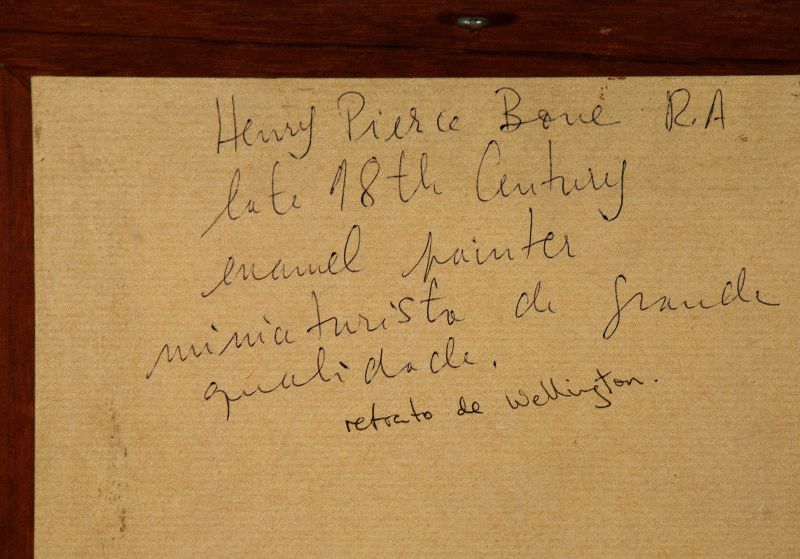 Henry Pierce Bone R.A
late 18th Century
enamel painter
miniaturista de grande
qualidade.
retrato de Wellington.